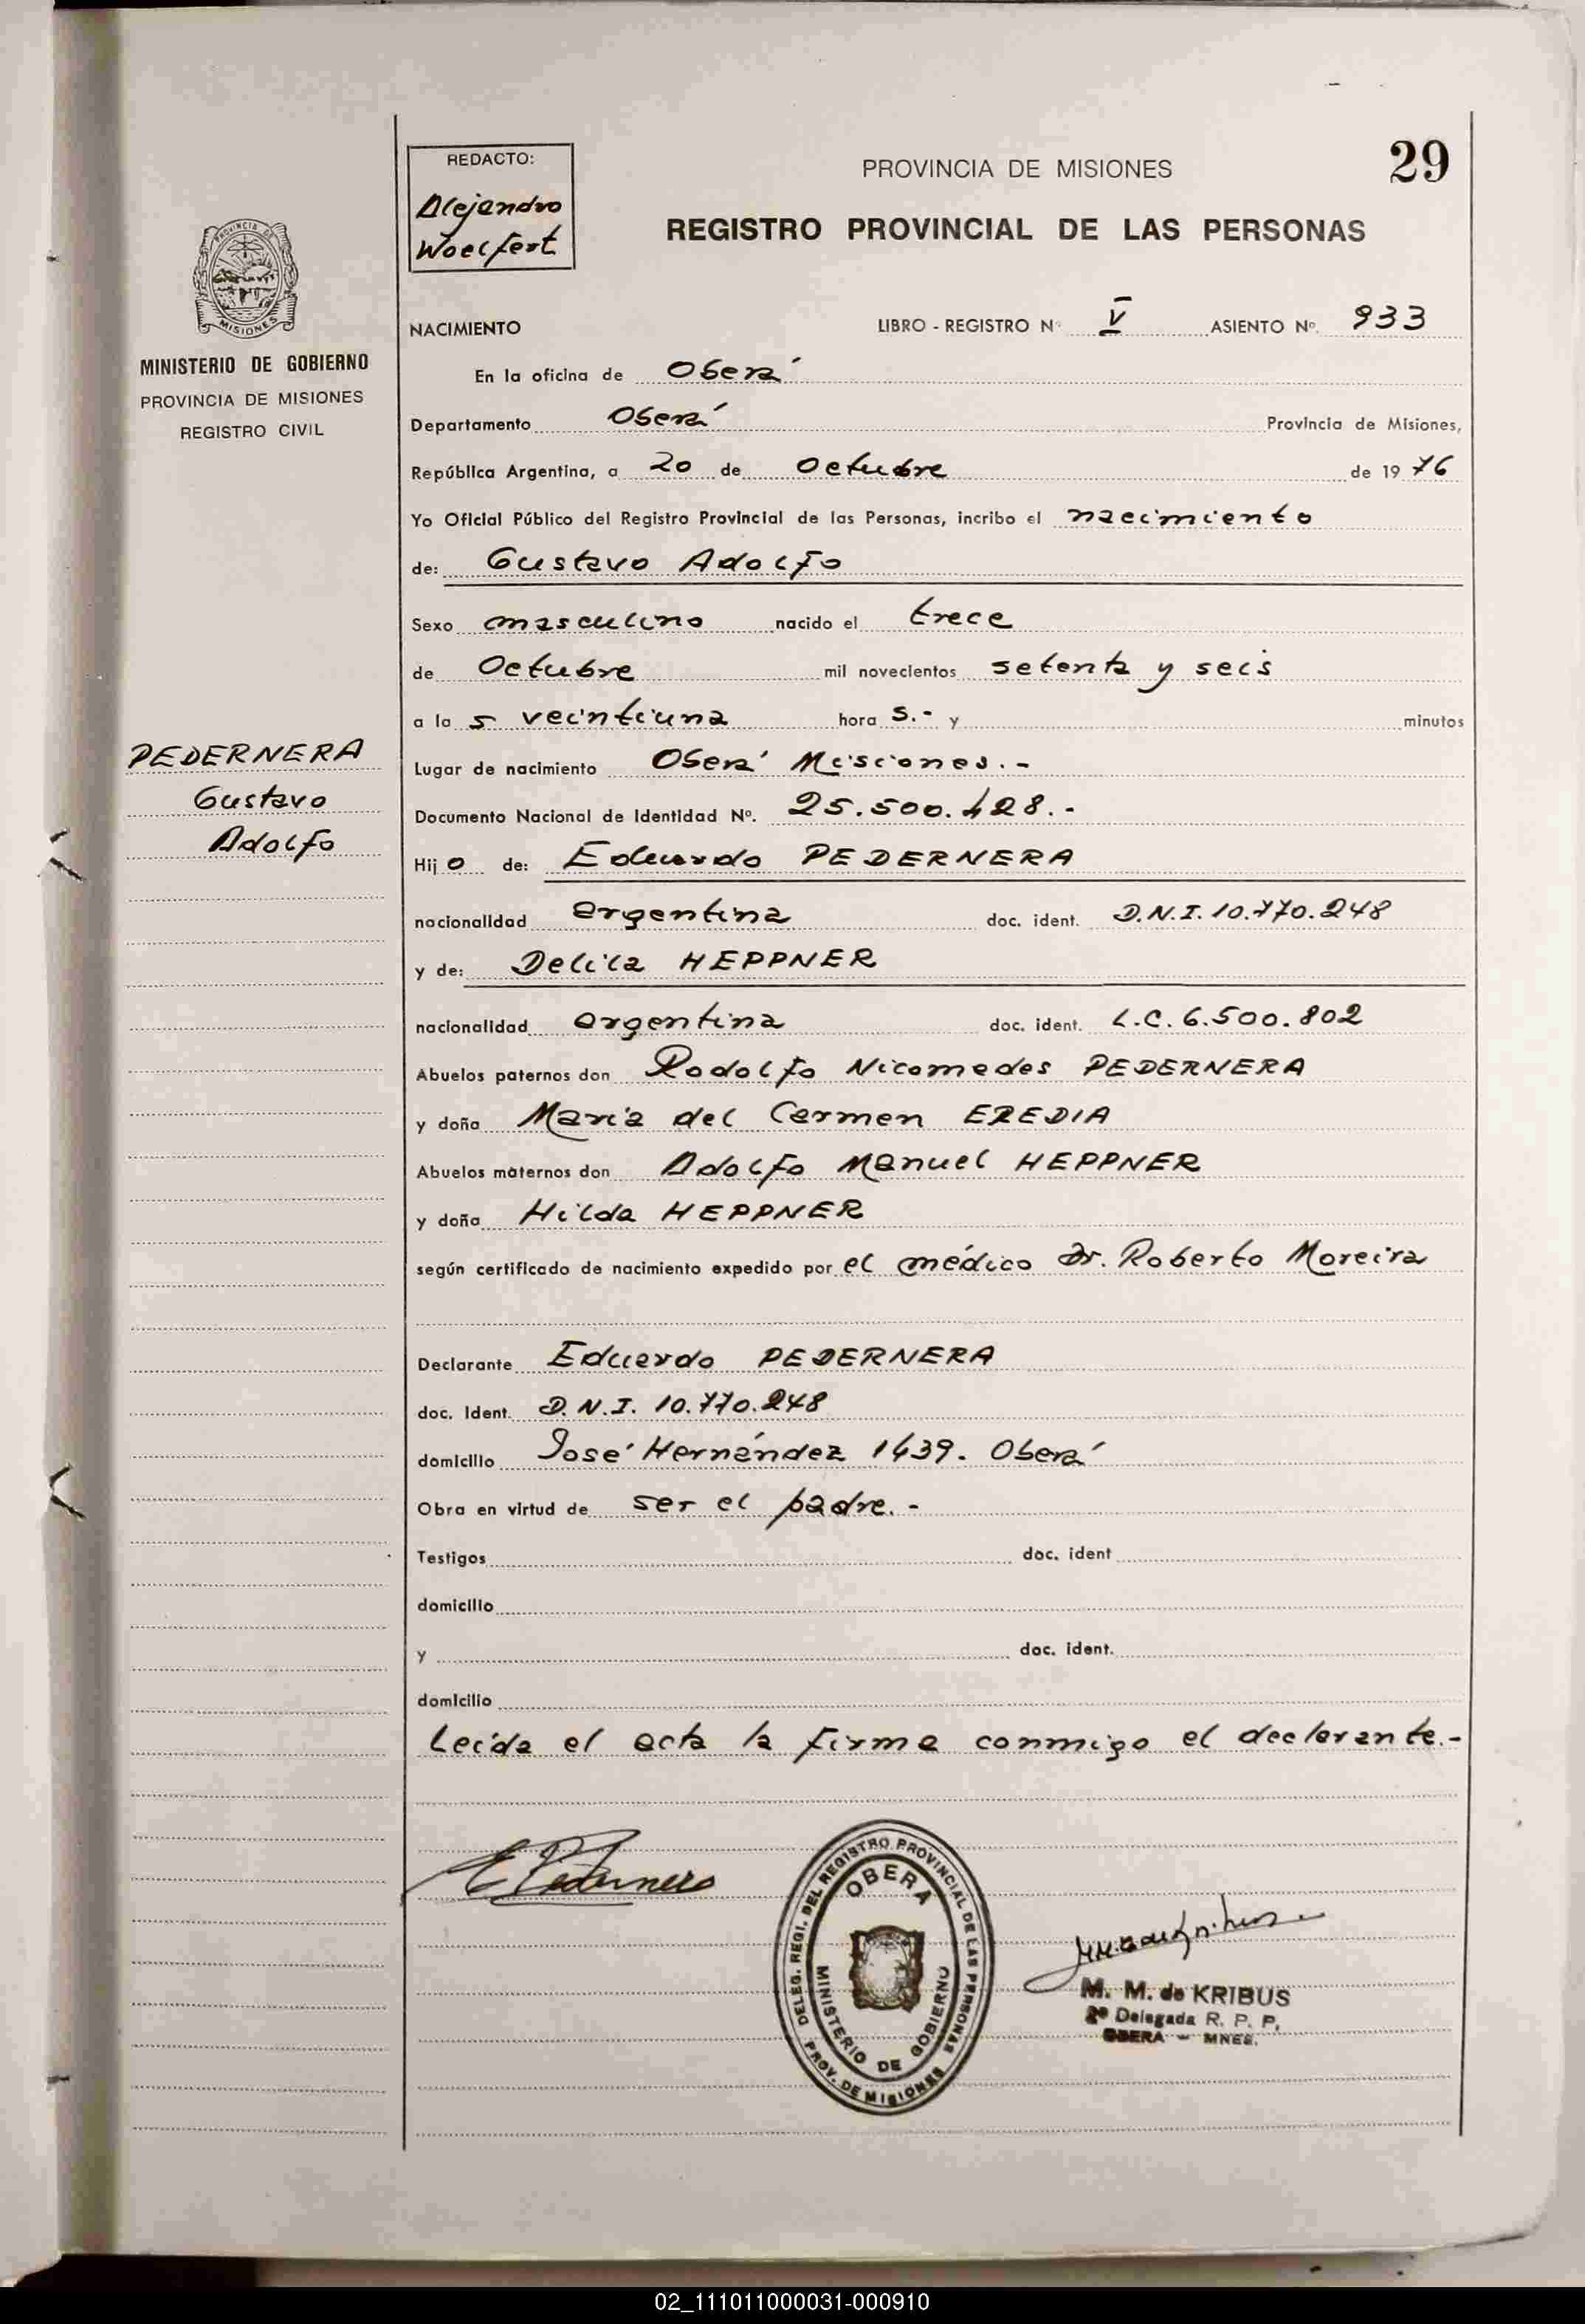 REDACTO:
Alejandro
Woelfert
PROVINCIA DE MISIONES
29
REGISTRO PROVINCIAL DE LAS PERSONAS
PROVINCIA DE
MISIONES
MINISTERIO DE GOBIERNO
PROVINCIA DE MISIONES
REGISTRO CIVIL
NACIMIENTO LIBRO - REGISTRO Nº V ASIENTO Nº. 933
En la oficina de Oberá
Departamento Oberá Provincia de Misiones,
República Argentina, a 20 de Octubre de 1976
Yo Oficial Público del Registro Provincial de las Personas, incribo el nacimiento
de: Gustavo Adolfo
Sexo masculino nacido el trece
de Octubre mil novecientos setenta y seis
a la s veintiuna hora s.- y minutos
PEDERNERA
Gustavo
Adolfo
Lugar de nacimiento Oberá Misiones.-
Documento Nacional de Identidad Nº. 25.500.428.-
Hijo de: Eduardo PEDERNERA
nacionalidad argentina doc. ident. D.N.I. 10.770.248
y de: Delila HEPPNER
nacionalidad argentina doc. ident. L.C. 6.500.802
Abuelos paternos don Rodolfo Nicomedes PEDERNERA
y doña María del Carmen EREDIA
Abuelos maternos don Adolfo Manuel HEPPNER
y doña Hilda HEPPNER
según certificado de nacimiento expedido por el médico Dr. Roberto Moreira
Declarante Eduardo PEDERNERA
doc. Ident. D.N.I. 10.770.248
domicilio José Hernández 1439. Oberá
Obra en virtud de ser el padre.-
Testigos doc. ident
domicilio
y doc. ident.
domicilio
Leída el acta la firma conmigo el declarante.-
E Pedernera
DELEG. REGI. DEL REGISTRO PROVINCIAL DE LAS PERSONAS
OBERA
MINISTERIO DE GOBIERNO
PROV. DE MISIONES
M. M. de KRIBUS
2º Delegada R. P. P.
OBERA - MNES.
02_111011000031-000910